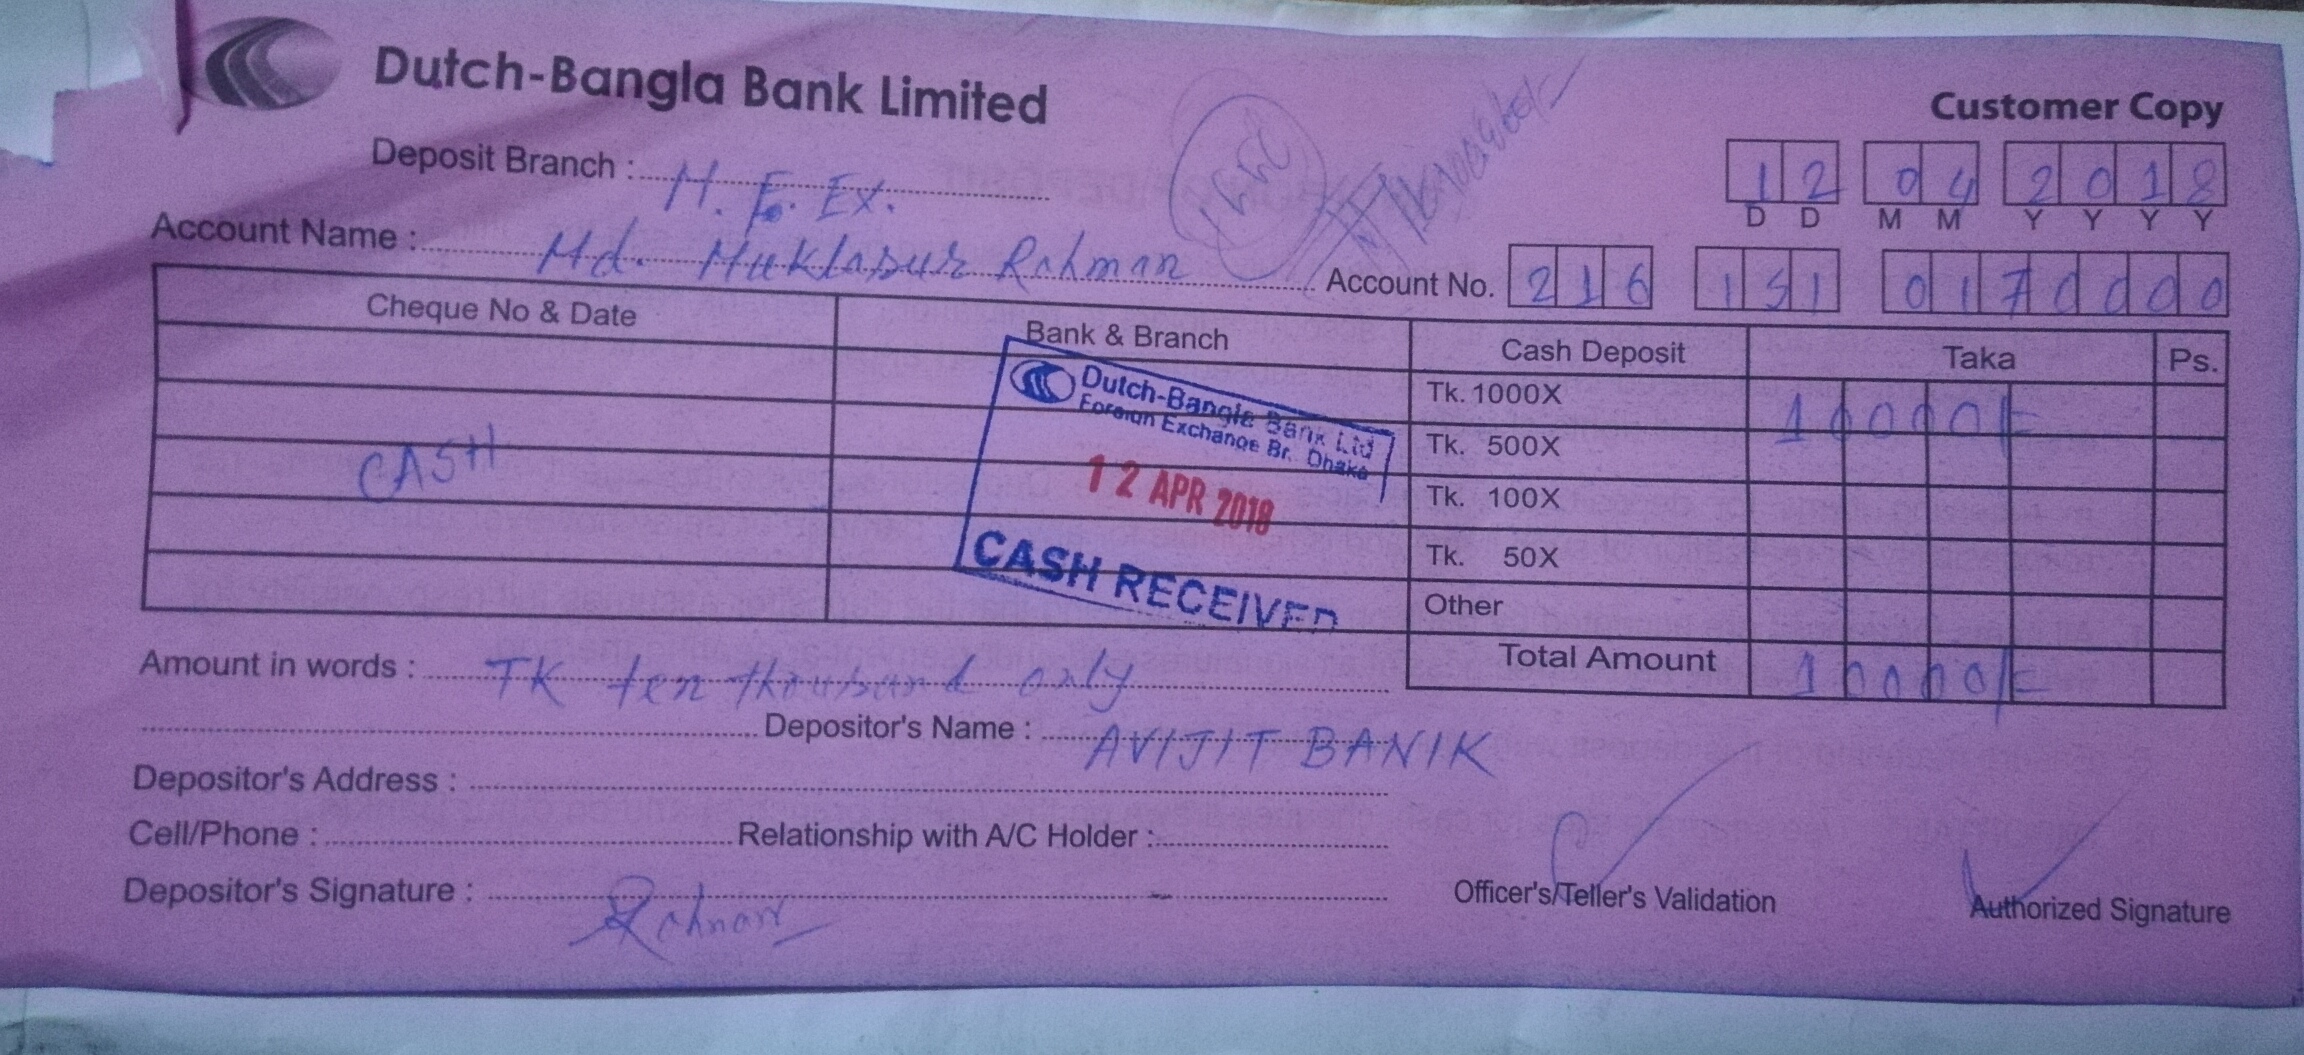 Dutch-Bangla Bank Limited
Customer Copy
Deposit Branch : M. F. Ex.
12 04 2018
D D M M Y Y Y Y
Account Name : Md. Muklasur Rahman
Account No. 216 151 0170000
Cheque No & Date Bank & Branch Cash Deposit Taka Ps.
Tk. 1000X 10000/=
Tk. 500X
Tk. 100X
Tk. 50X
Other
Total Amount 10000/=
CASH
Dutch-Bangla Bank Ltd
Foreign Exchange Br. Dhaka
12 APR 2018
CASH RECEIVED
Amount in words : TK ten thousand only
Depositor's Name : AVIJIT BANIK
Depositor's Address :
Cell/Phone : Relationship with A/C Holder :
Depositor's Signature : Rahman
Officer's/Teller's Validation
Authorized Signature